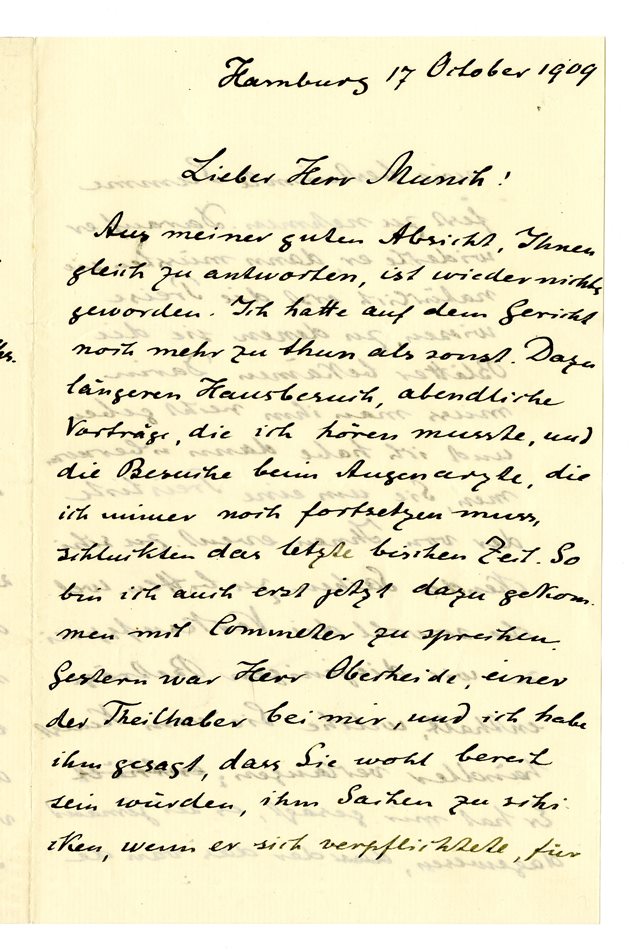 Hamburg 17 October 1909
Lieber Herr Munch!
Aus meiner guten Absicht, Ihnen
gleich zu antworten, ist wieder nichts
geworden. Ich hatte auf dem Gericht
noch mehr zu thun als sonst. Dazu
längeren Hausbesuch, abendliche
Vorträge, die ich hören musste, und
die Besuche beim Augenarzte, die
ich immer noch fortsetzen muss,
schluckten das letzte bischen Zeit. So
bin ich auch erst jetzt dazu gekom-
men mit Commeter zu sprechen.
Gestern war Herr Oberheide, einer
der Theilhaber bei mir, und ich habe
ihm gesagt, dass Sie wohl bereit
sein würden, ihm Sachen zu schi-
cken, wenn er sich verpflichtete, für